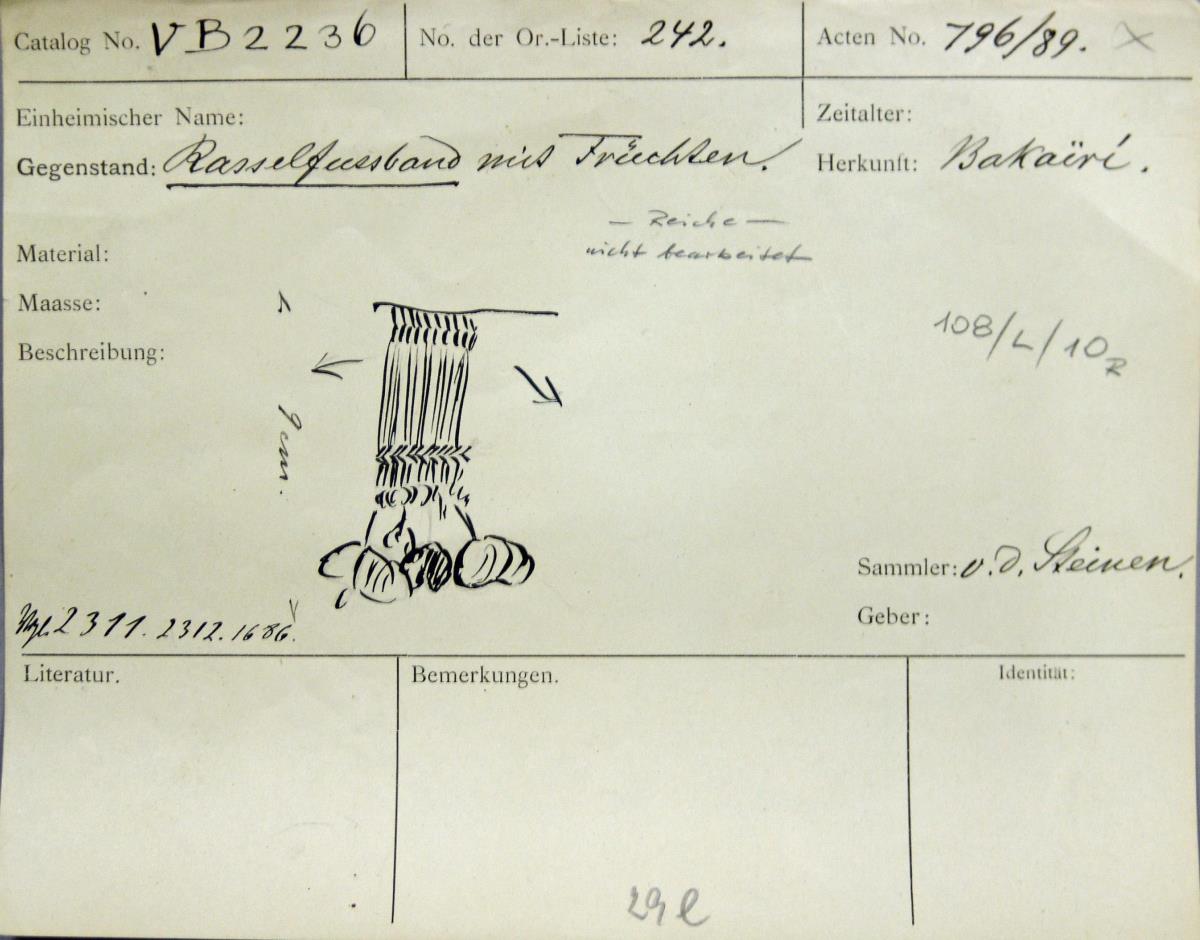 Catalog No. VB 2236
No. der Or.-Liste: 242.
Acten No. 796/89.
Einheimischer Name:
Zeitalter:
Gegenstand: Rasselfussband mit Früchten.
Herkunft: Bakaïrí.
nicht bearbeitet
Material:
Maasse:
Beschreibung:
108/L/10R
9 cm.
Sammler: v. d. Steinen.
Geber:
Vgl. 2311. 2312. 1686.
Literatur.
Bemerkungen.
Identität:
29 l